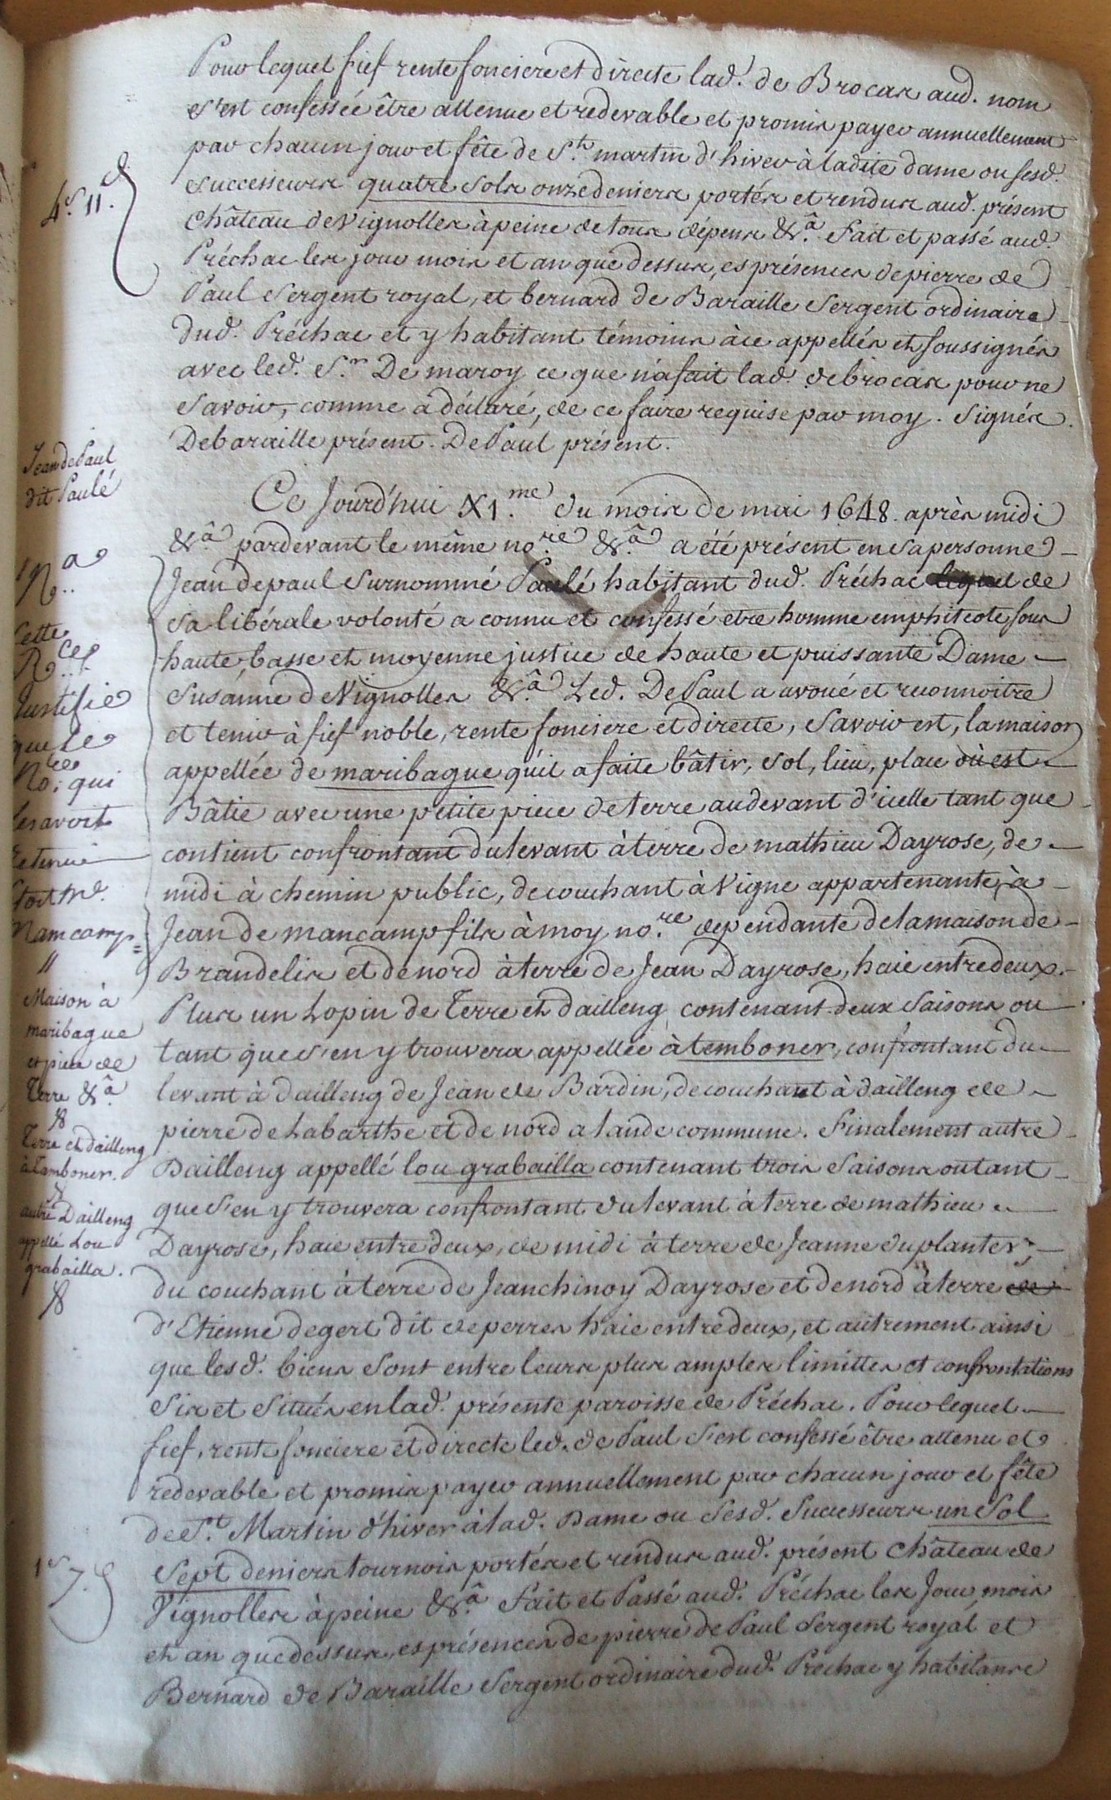 Pour lequel fief rente fonciere et directe lad.e de Brocas aud. nom
s'est confessée être attenue et redevable et promis payer annuellement
par chacun jour et fête de S.t martin d'hiver à ladite dame ou sesd.
successeurs quatre sols onze deniers portés et rendus aud. présent
4.s 11.d
château de Vignolles à peine de tous dépens &.a fait et passé aud.
Préchac les jour mois et an que dessus, es présences de pierre de
Paul sergent royal, et bernard de Baraille sergent ordinaire
dud. Préchac et y habitant témoins à ce appellés et soussignés
avec led. S.r De maroy ce que n'a fait lad. de brocas pour ne
savoir, comme a déclaré, de ce faire requise par moy. Signés
Debaraille présent. De Paul présent.
Jean de Paul
dit Paulé
Ce Jourd'hui X1.me du mois de mai 1648. après midi
&.a pardevant le même no.re &.a a été présent en sa personne
Jean de paul surnommé Paulé habitant dud. Préchac lequel de
sa libérale volonté a connu et confessé etre homme emphiteote sous
haute, basse et moyenne justice de haute et puissante Dame
Susanne de Vignolles &.a Led. De Paul a avoué et reconnoitre
et tenir à fief noble, rente fonciere et directe, savoir est, la maison
appellée de maribague qu'il a faite bâtir, sol, lieu, place où est
Bâtie avec une petite piece de terre audevant d'icelle tant que
contient confrontant du levant à terre de mathieu Dayrose, de
midi à chemin public, de couchant à Vigne appartenante, à
Jean de mancamp fils à moy no.re dependante de la maison de
Brandelis et de nord à terre de Jean Dayrose, haie entredeux.
N.a
Cette
R.ce
Justifie
que le
No.re qui
les avoit
retenu
étoit m.e
Mamcamp
Plus un Lopin de Terre et dailleng contenant deux saisons ou
tant que s'en y trouvera appellée à temboner, confrontant du
levant à dailleng de Jean de Bardin, de couchant à dailleng de
pierre de Labarthe et de nord a lande commune. Finalement autre
Dailleng appellé lou grabailla contenant trois saisons ou tant
que s'en y trouvera confrontant du levant à terre de mathieu
Dayrose, haie entre deux, de midi à terre de Jeanne duplanter,
du couchant à terre de Jeanchinoy Dayrose et de nord à terre de
d'Etienne degert dit de perres haie entredeux, et autrement ainsi
Maison à
maribague
et piece de
Terre &.a
Terre et dailleng
à Temboner.
autre Dailleng
appellé Lou
grabailla.
que lesd. biens sont entre leurs plus amples limittes et confrontations
sis et situés en lad. présente paroisse de Préchac. Pour lequel
fief, rente fonciere et directe led. de Paul s'est confessé être attenu et
redevable et promis payer annuellement par chacun jour et fête
de S.t Martin d'hiver à lad. Dame ou sesd. successeurs un sol
sept deniers tournois portés et rendus aud. présent château de
1.s 7.d
Vignolles à peine &.a Fait et Passé aud. Préchac les Jour, mois
et an que dessus, es présences de pierre de Paul sergent royal et
Bernard de Baraille sergent ordinaire dud. Préchac y habitans